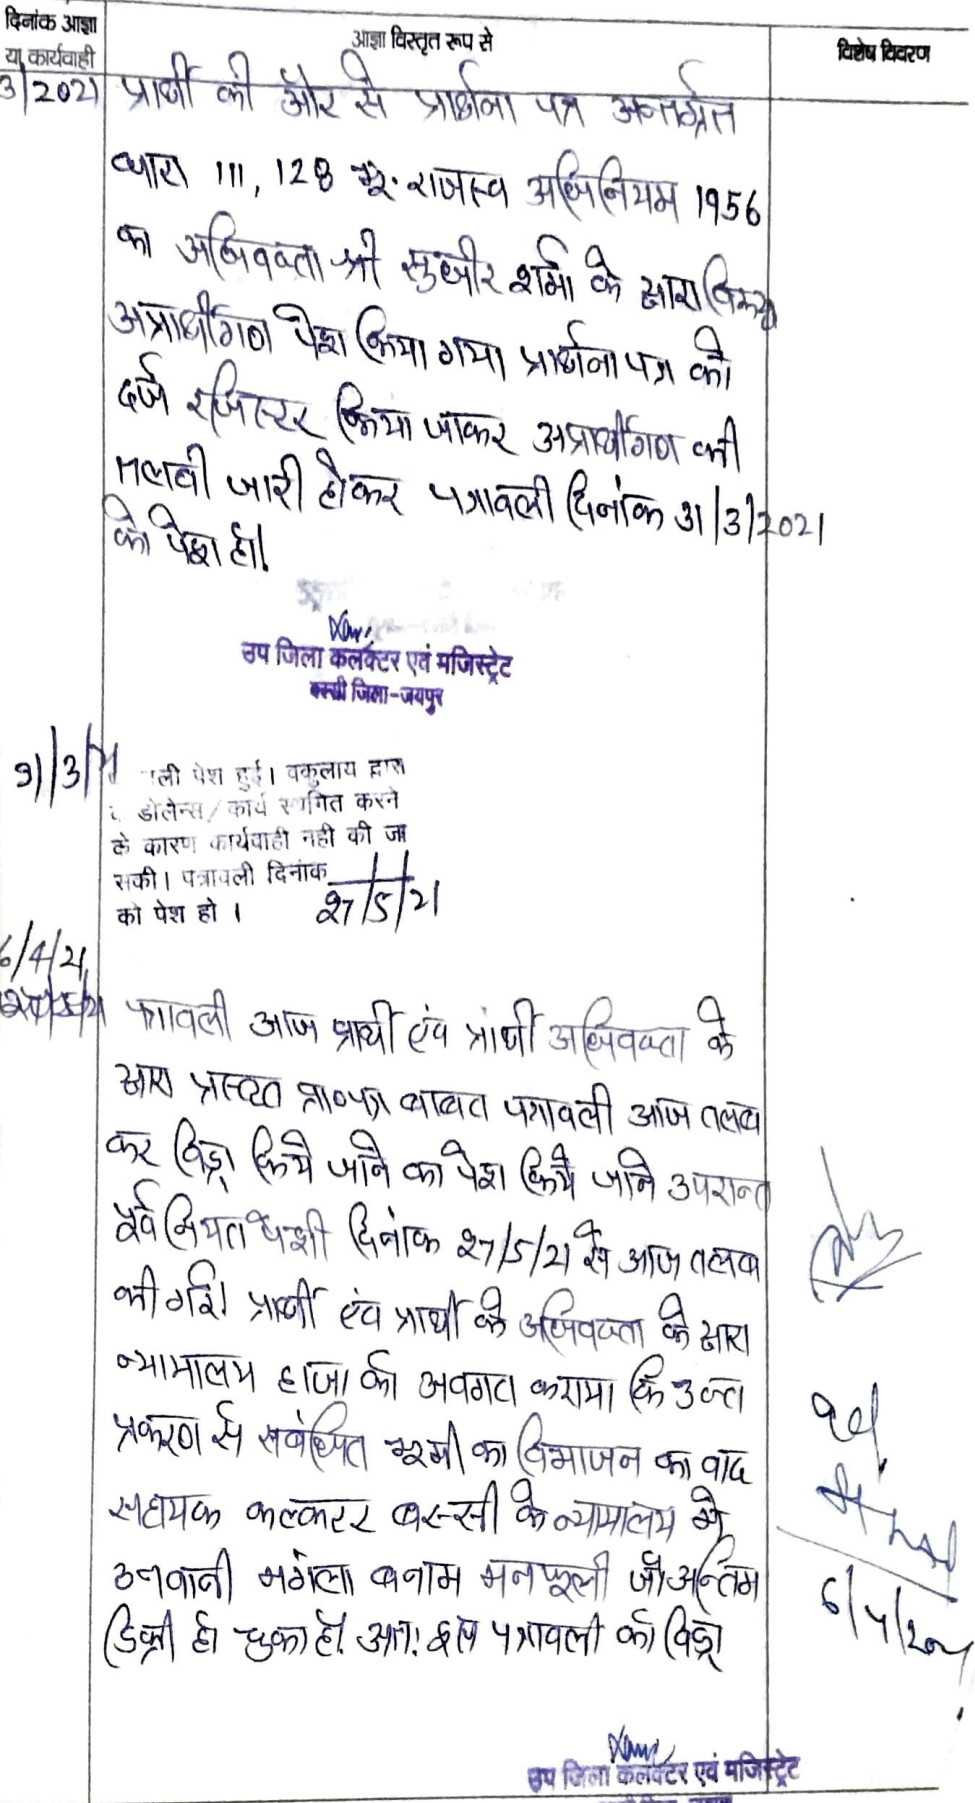 दिनांक आज्ञा
या कार्यवाही
आज्ञा विस्तृत रूप से
विशेष विवरण
3/2021 प्रार्थी की और से प्रार्थना पत्र अन्तर्ग्रत
धारा 111, 128 भू. राजस्व अधिनियम 1956
का अधिवक्ता श्री सुधीर शर्मा के द्वारा विरूद्ध
अप्रार्थीगण पेश किया गया प्रार्थना पत्र को
दर्ज रजिस्टर किया जाकर अप्रार्थीगण की
तलबी जारी होकर पत्रावली दिनांक 31/3/2021
को पेश हो।
उप जिला कलक्टर एवं मजिस्ट्रेट
बस्सी जिला-जयपुर
31/3/21
ली पेश हुई। वकुलाय द्वारा
डोलेन्स/कार्य स्थगित करने
के कारण कार्यवाही नही की जा
सकी। पत्रावली दिनांक
को पेश हो । 27/5/21
6/4/21
पत्रावली आज प्रार्थी एंव प्रार्थी अधिवक्ता के
द्वारा प्रस्तुत प्रा०पत्र बाबत पत्रावली आज तलब
कर विड्रा किये जाने का पेश किये जाने उपरान्त
पूर्व नियत पेशी दिनांक 27/5/21 से आज तलब
की गई। प्रार्थी एंव प्रार्थी के अधिवक्ता के द्वारा
न्यायालय हाजा को अवगत कराया कि उक्त
प्रकरण से सबंधित भूमी का विभाजन का वाद
सहायक कल्कटर बस्सी के न्यायालय मे
उनवानी मगंला बनाम मनफूली जो अन्तिम
डिक्री हो चुका हो। अतः इस पत्रावली को विड्रा
6/4/2021
उप जिला कलक्टर एवं मजिस्ट्रेट